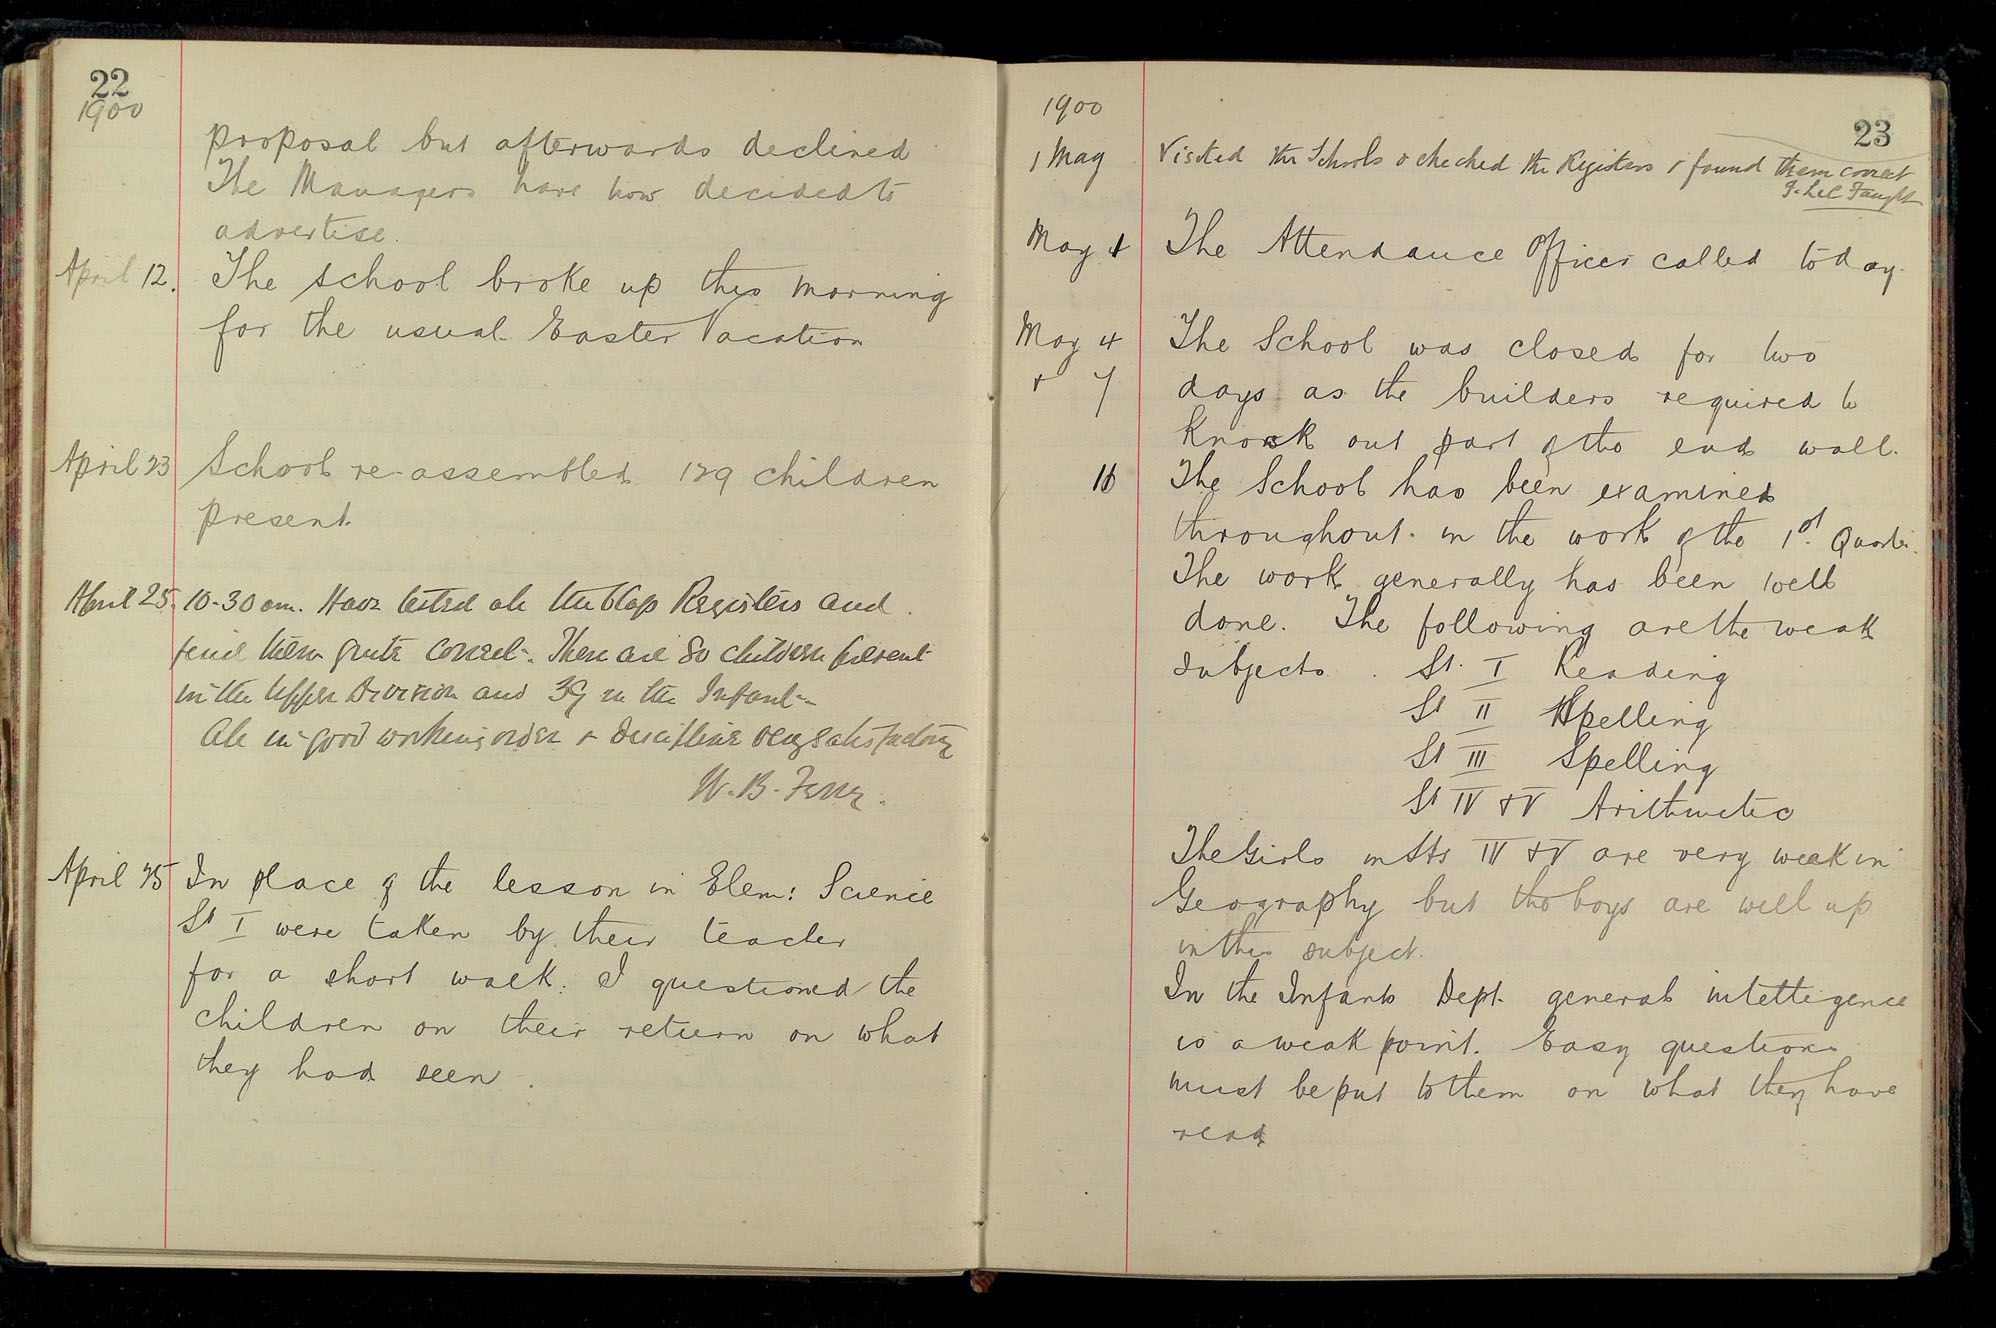 22
1900
proposal but afterwards declined
The Managers have now decided to
advertise.
April 12. The school broke up this morning
for the usual Easter Vacation
April 23 School re-assembled 129 children
present.
April 25. 10-30 am. Have tested all the Class Registers and
find them quite correct. There are 80 children present
in the Upper Division and 39 in the Infant
All in good working order & discipline very satisfactory
W. B.
April 25 In place of the lesson in Elem: Science
St I were taken by their teacher
for a short walk. I questioned the
children on their return on what
they had seen.
23
1900
1 May Visited the Schools & checked the Registers & found them correct
May 1 The Attendance Officer called today.
May 4 The School was closed for two
& 7 days as the builders required to
knock out part of the end wall.
The School has been examined
throughout in the work of the 1st Quarter.
The work generally has been well
done. The following are the weak
subjects. St. I Reading
St II Spelling
St III Spelling
St IV & V Arithmetic
The Girls in Sts IV & V are very weak in
Geography but the boys are well up
in this subject.
In the Infants Dept. general intelligence
is a weak point. Easy questions
must be put to them on what they have
read